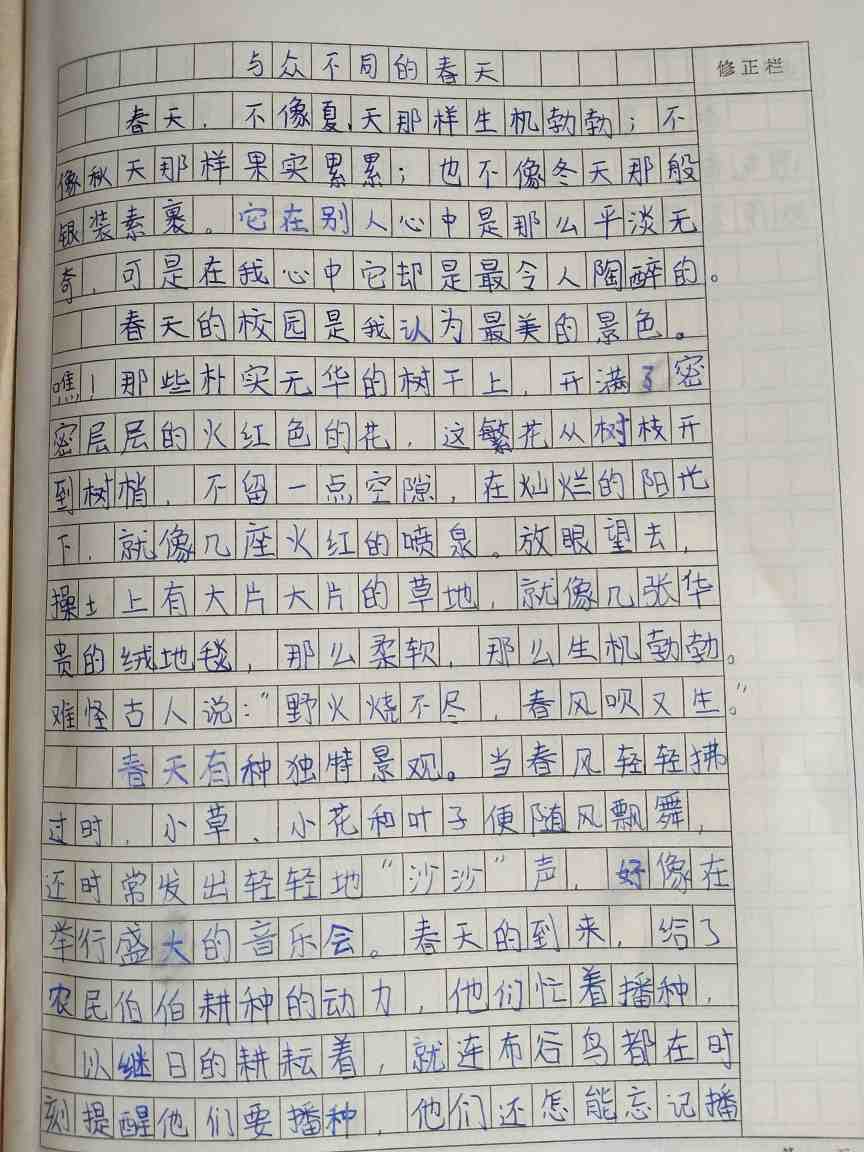 与众不同的春天
修正栏
春天，不像夏天那样生机勃勃；不
像秋天那样果实累累；也不像冬天那般
银装素裹。它在别人心中是那么平淡无
奇，可是在我心中它却是最令人陶醉的。
春天的校园是我认为最美的景色。
瞧！那些朴实无华的树干上，开满了密
密层层的火红色的花，这繁花从树枝开
到树梢，不留一点空隙，在灿烂的阳光
下，就像几座火红的喷泉。放眼望去，
操土上有大片大片的草地，就像几张华
贵的绒地毯，那么柔软，那么生机勃勃。
难怪古人说：“野火烧不尽，春风吹又生。”
春天有种独特景观。当春风轻轻拂
过时，小草、小花和叶子便随风飘舞，
还时常发出轻轻地“沙沙”声，好像在
举行盛大的音乐会。春天的到来，给了
农民伯伯耕种的动力，他们忙着播种，
以继日的耕耘着，就连布谷鸟都在时
刻提醒他们要播种，他们还怎能忘记播